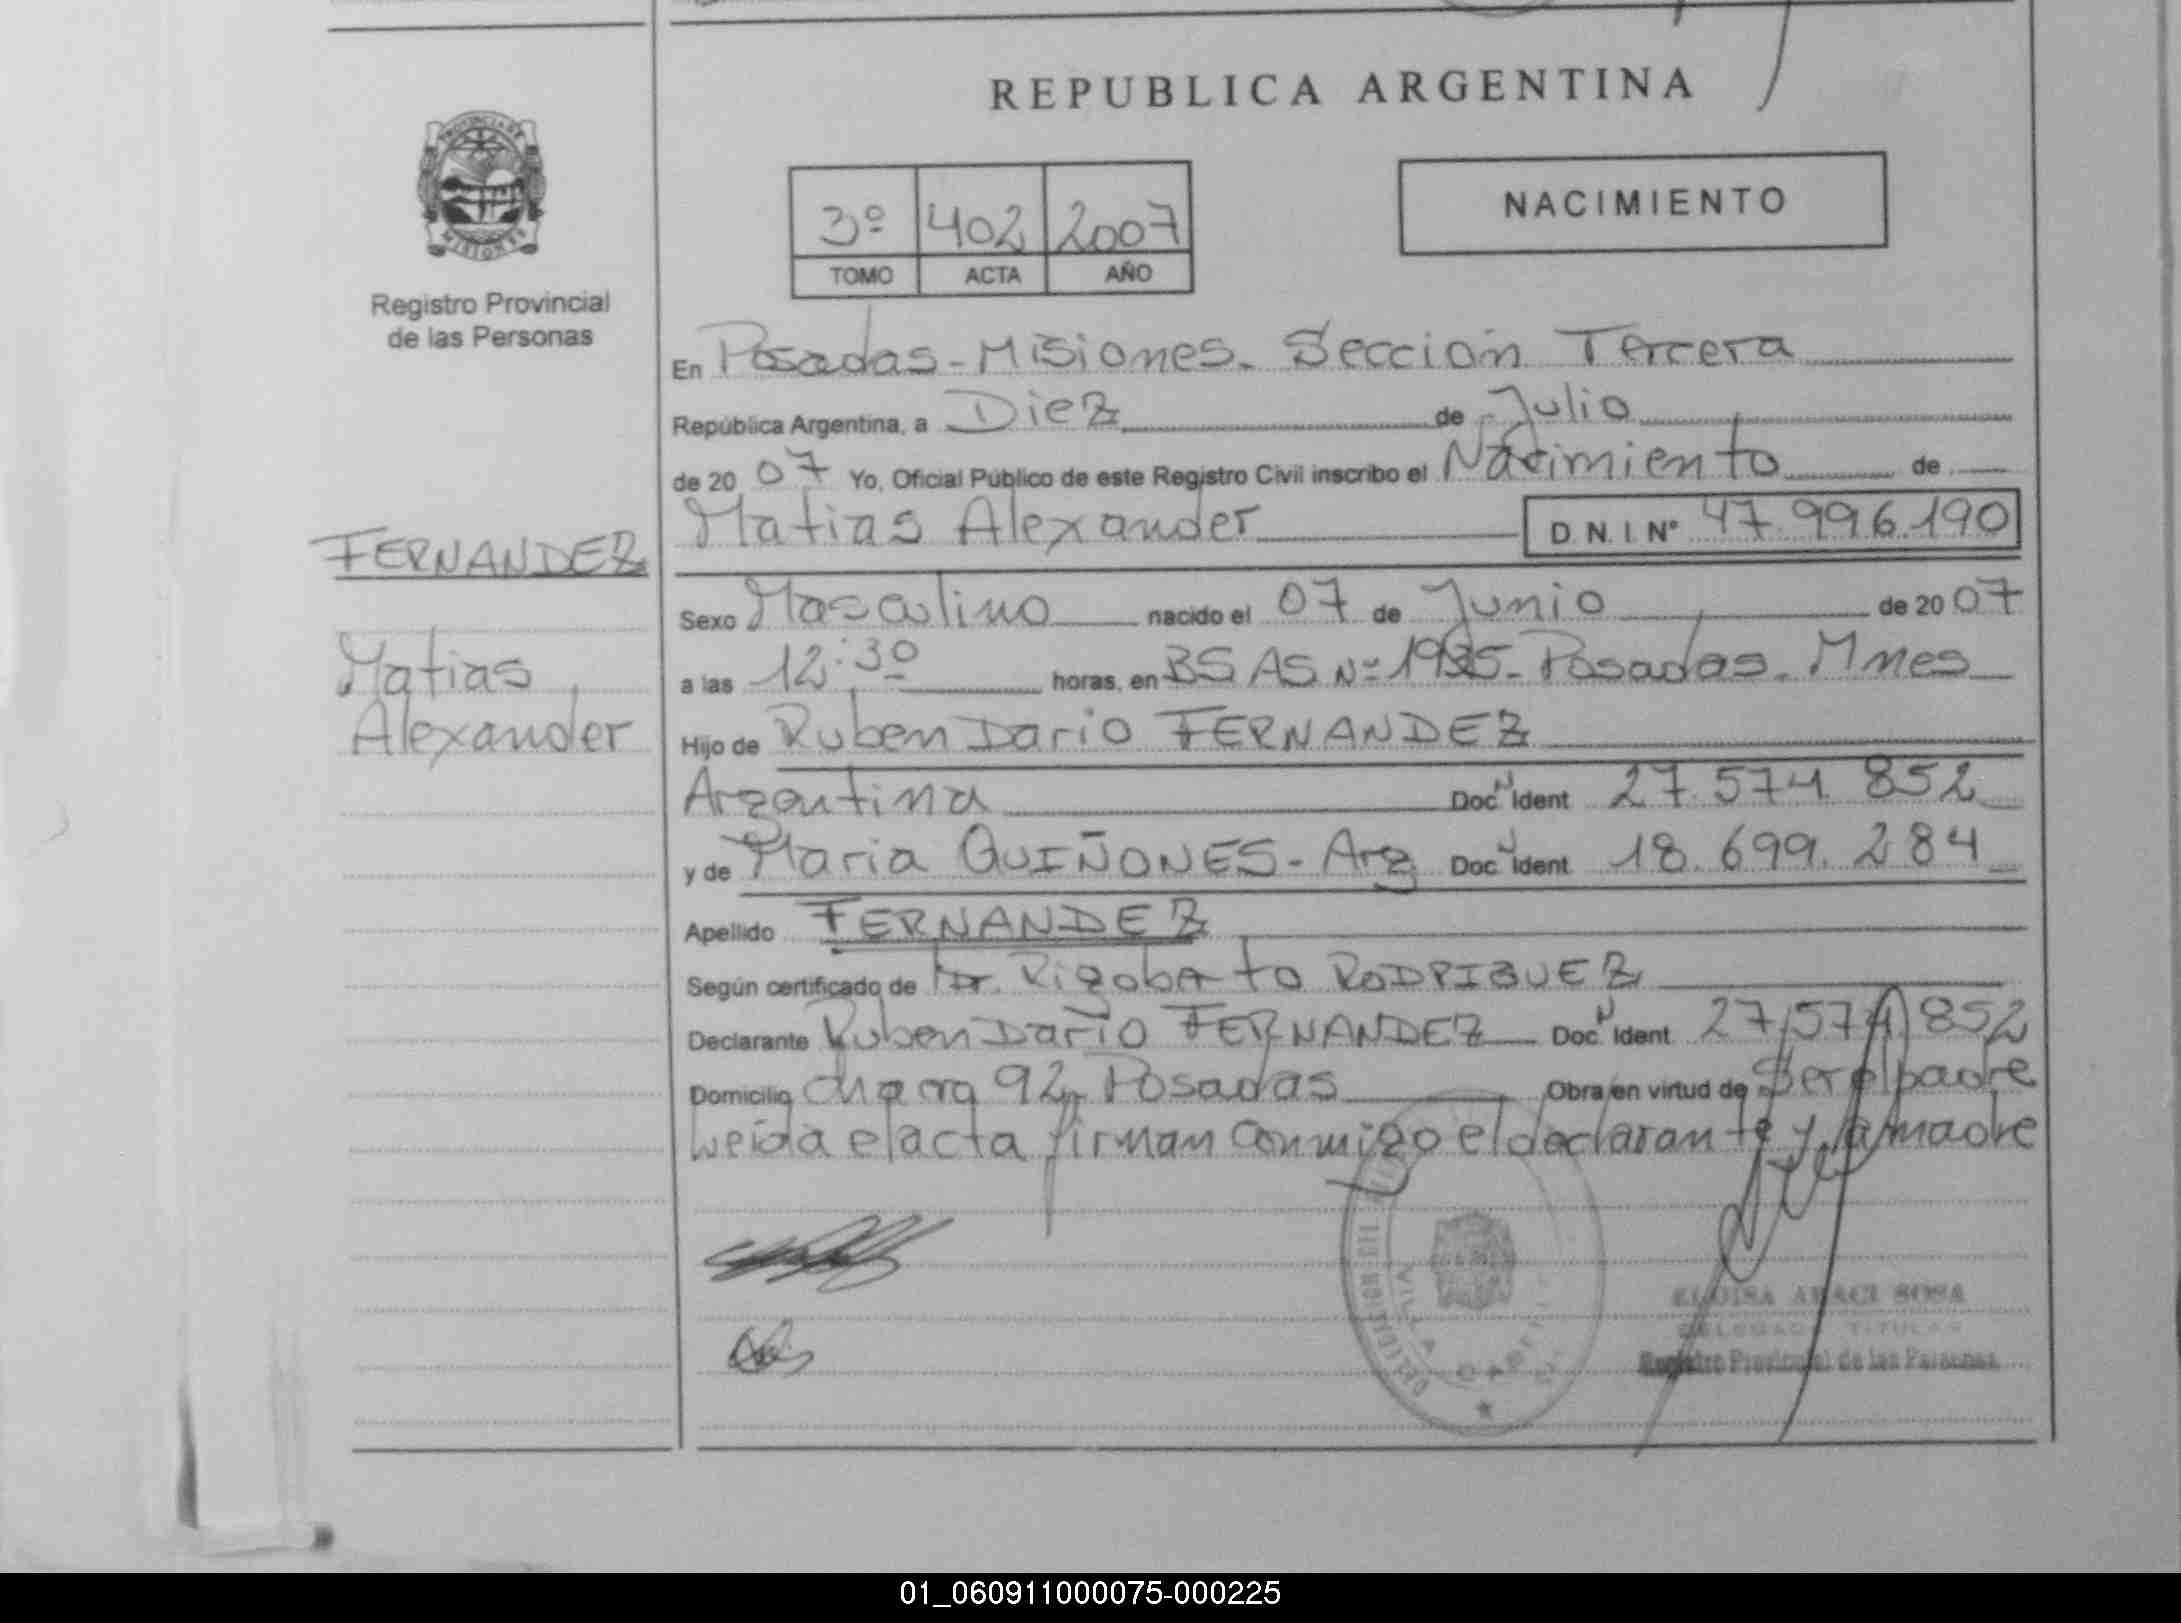 REPUBLICA ARGENTINA
PROVINCIA DE
MISIONES
Registro Provincial
de las Personas
NACIMIENTO
3º 402 2007
TOMO ACTA AÑO
En Posadas - Misiones. Sección Tercera
República Argentina, a Diez de Julio
de 20 07 Yo, Oficial Público de este Registro Civil inscribo el Nacimiento de
Matias Alexander D.N.I. Nº 47.996.190
FERNANDEZ
Matias
Alexander
Sexo Masculino nacido el 07 de Junio de 20 07
a las 12:30 horas, en BS AS Nº Posadas. Mnes
Hijo de Ruben Dario FERNANDEZ
Argentina Doc. Ident 27.574.852
y de Maria QUIÑONES - Arg Doc. Ident 18.699.284
Apellido FERNANDEZ
Según certificado de Dr. Rigoberto RODRIGUEZ
Declarante Ruben Dario FERNANDEZ Doc. Ident 27.574.852
Domicilio 92 Posadas Obra en virtud de Ser el padre
Leida el acta firman conmigo el declarante y la madre
ELOISA ARACI SOSA
DELEGADA TITULAR
Registro Provincial de las Personas
01_060911000075-000225